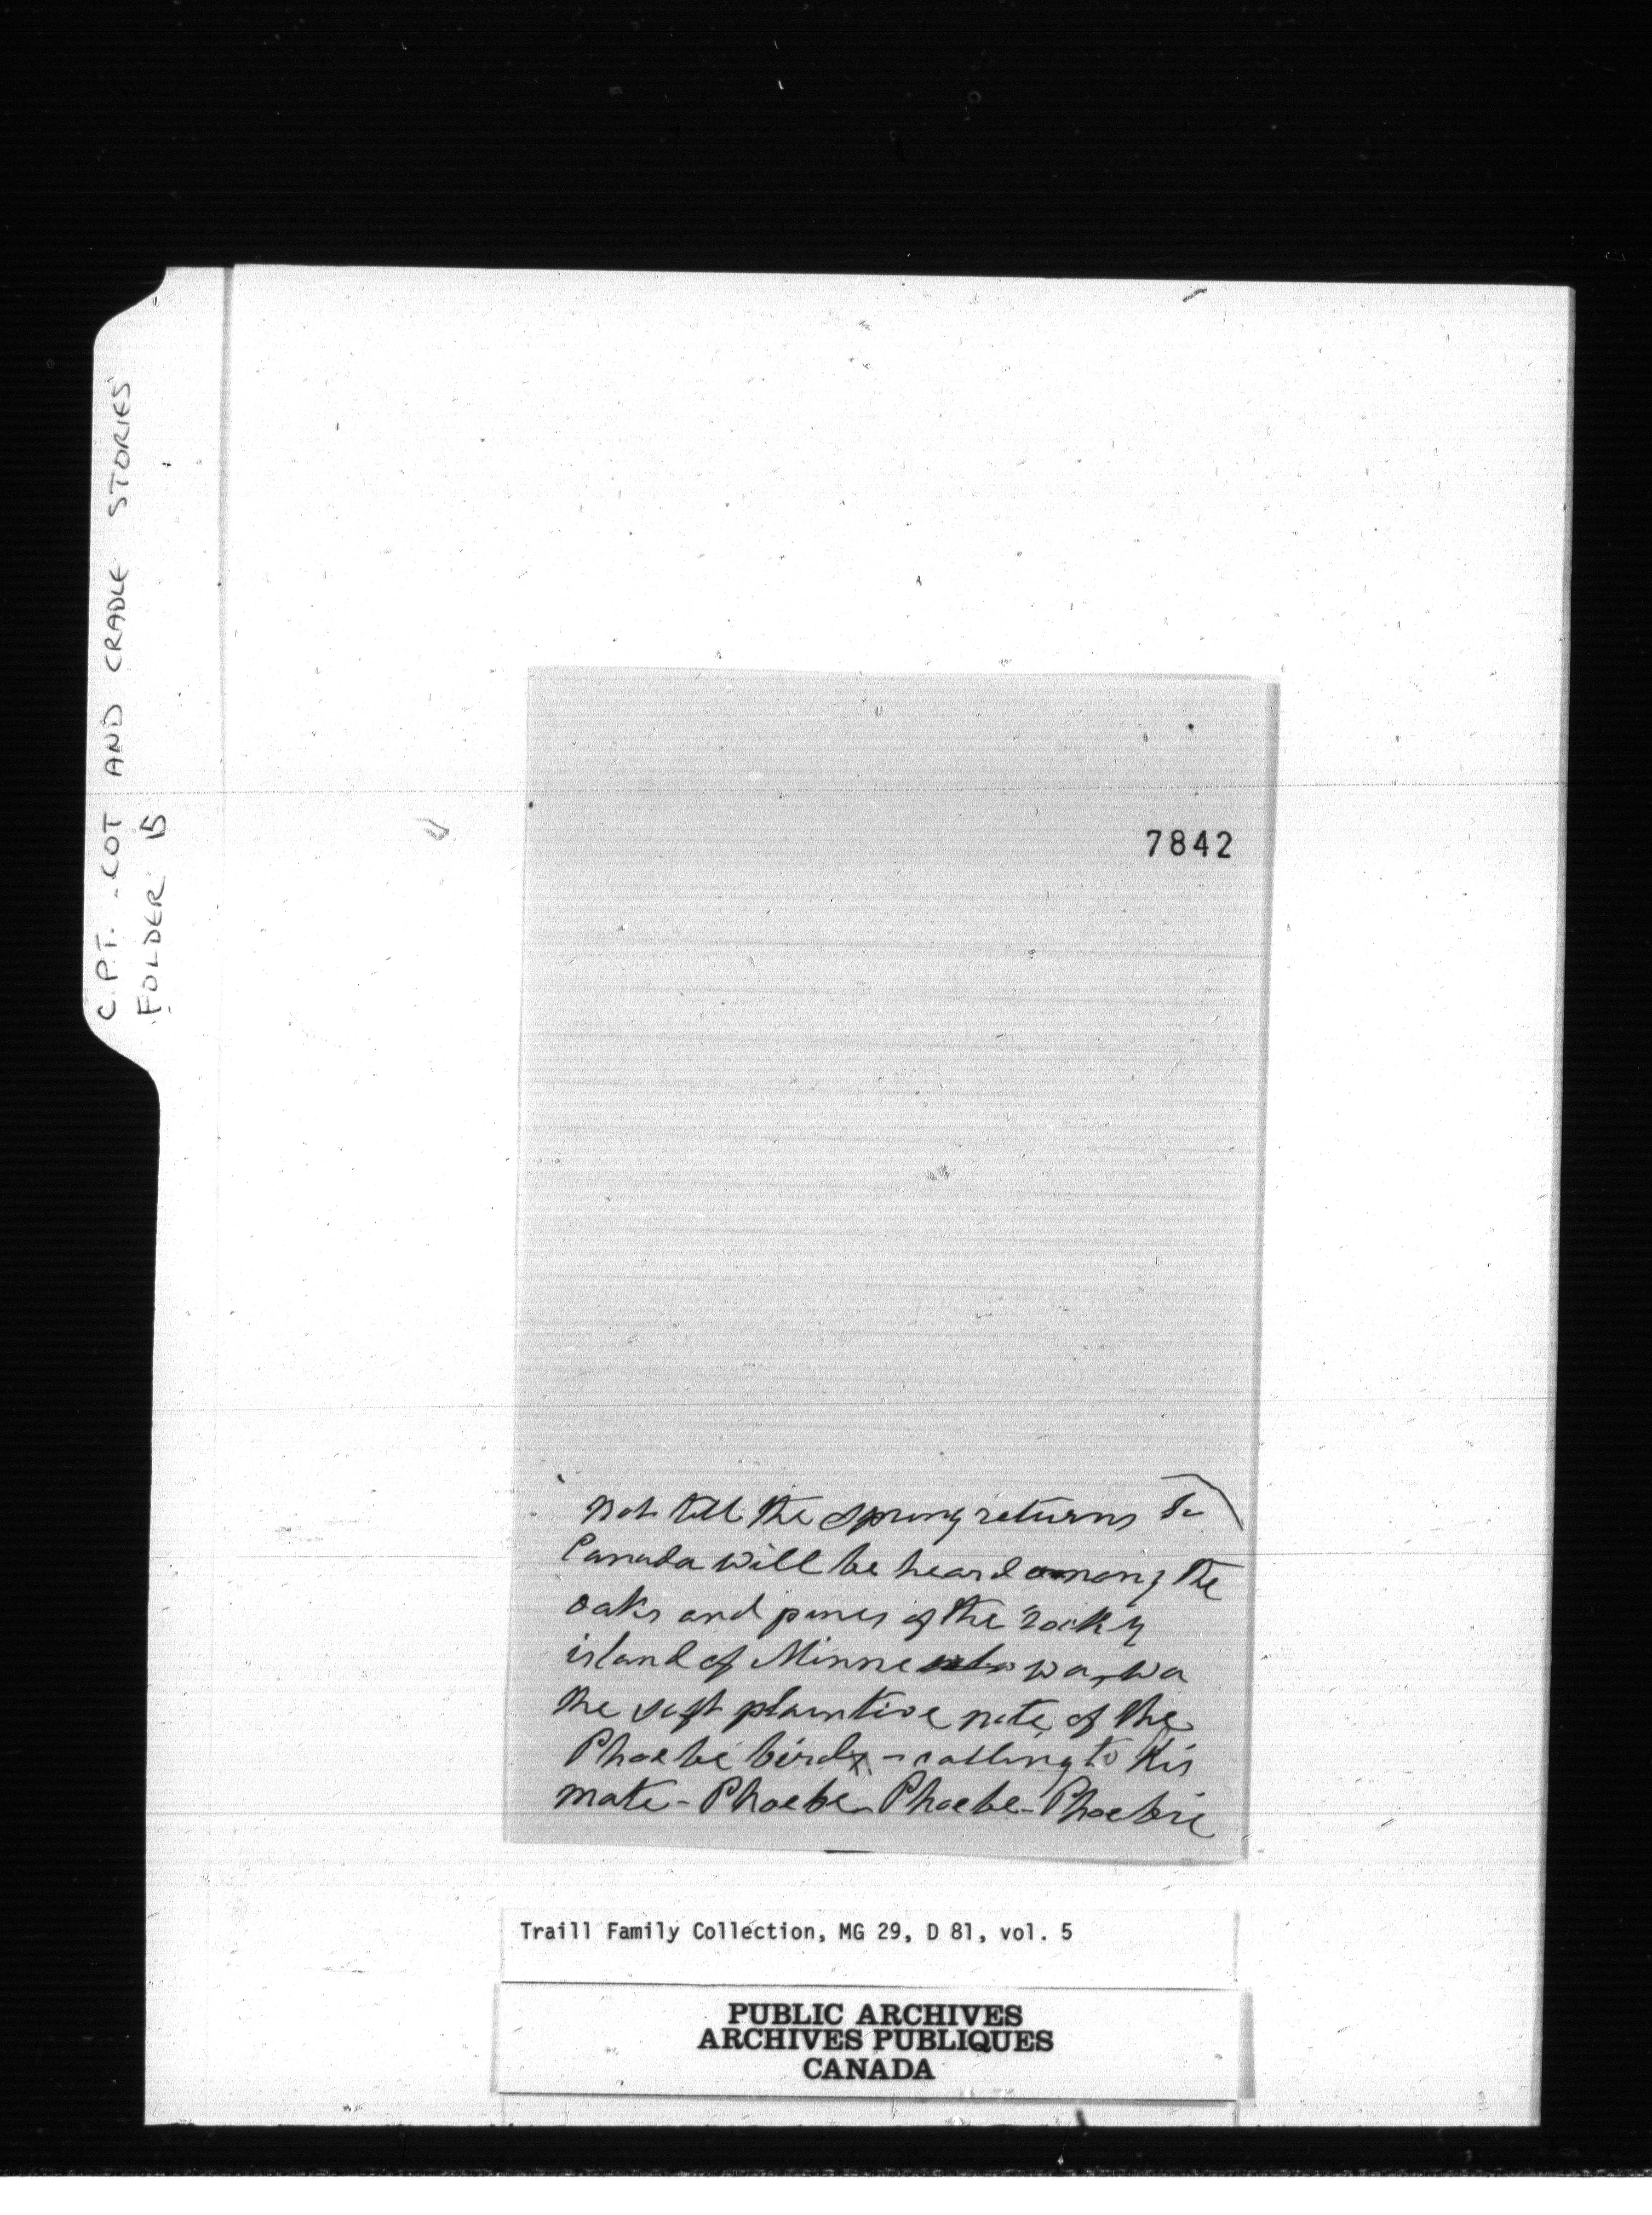 C.P.T. - COT AND CRADLE STORIES
FOLDER 15
7842
Not till the spring returns to
Canada will be heard among the
oaks and pines of the rocky
island of Minne wa-wa
the soft plaintive note of the
Phoebe bird - calling to his
mate - Phoebe - Phoebe - Phoebie
Traill Family Collection, MG 29, D 81, vol. 5
PUBLIC ARCHIVES
ARCHIVES PUBLIQUES
CANADA